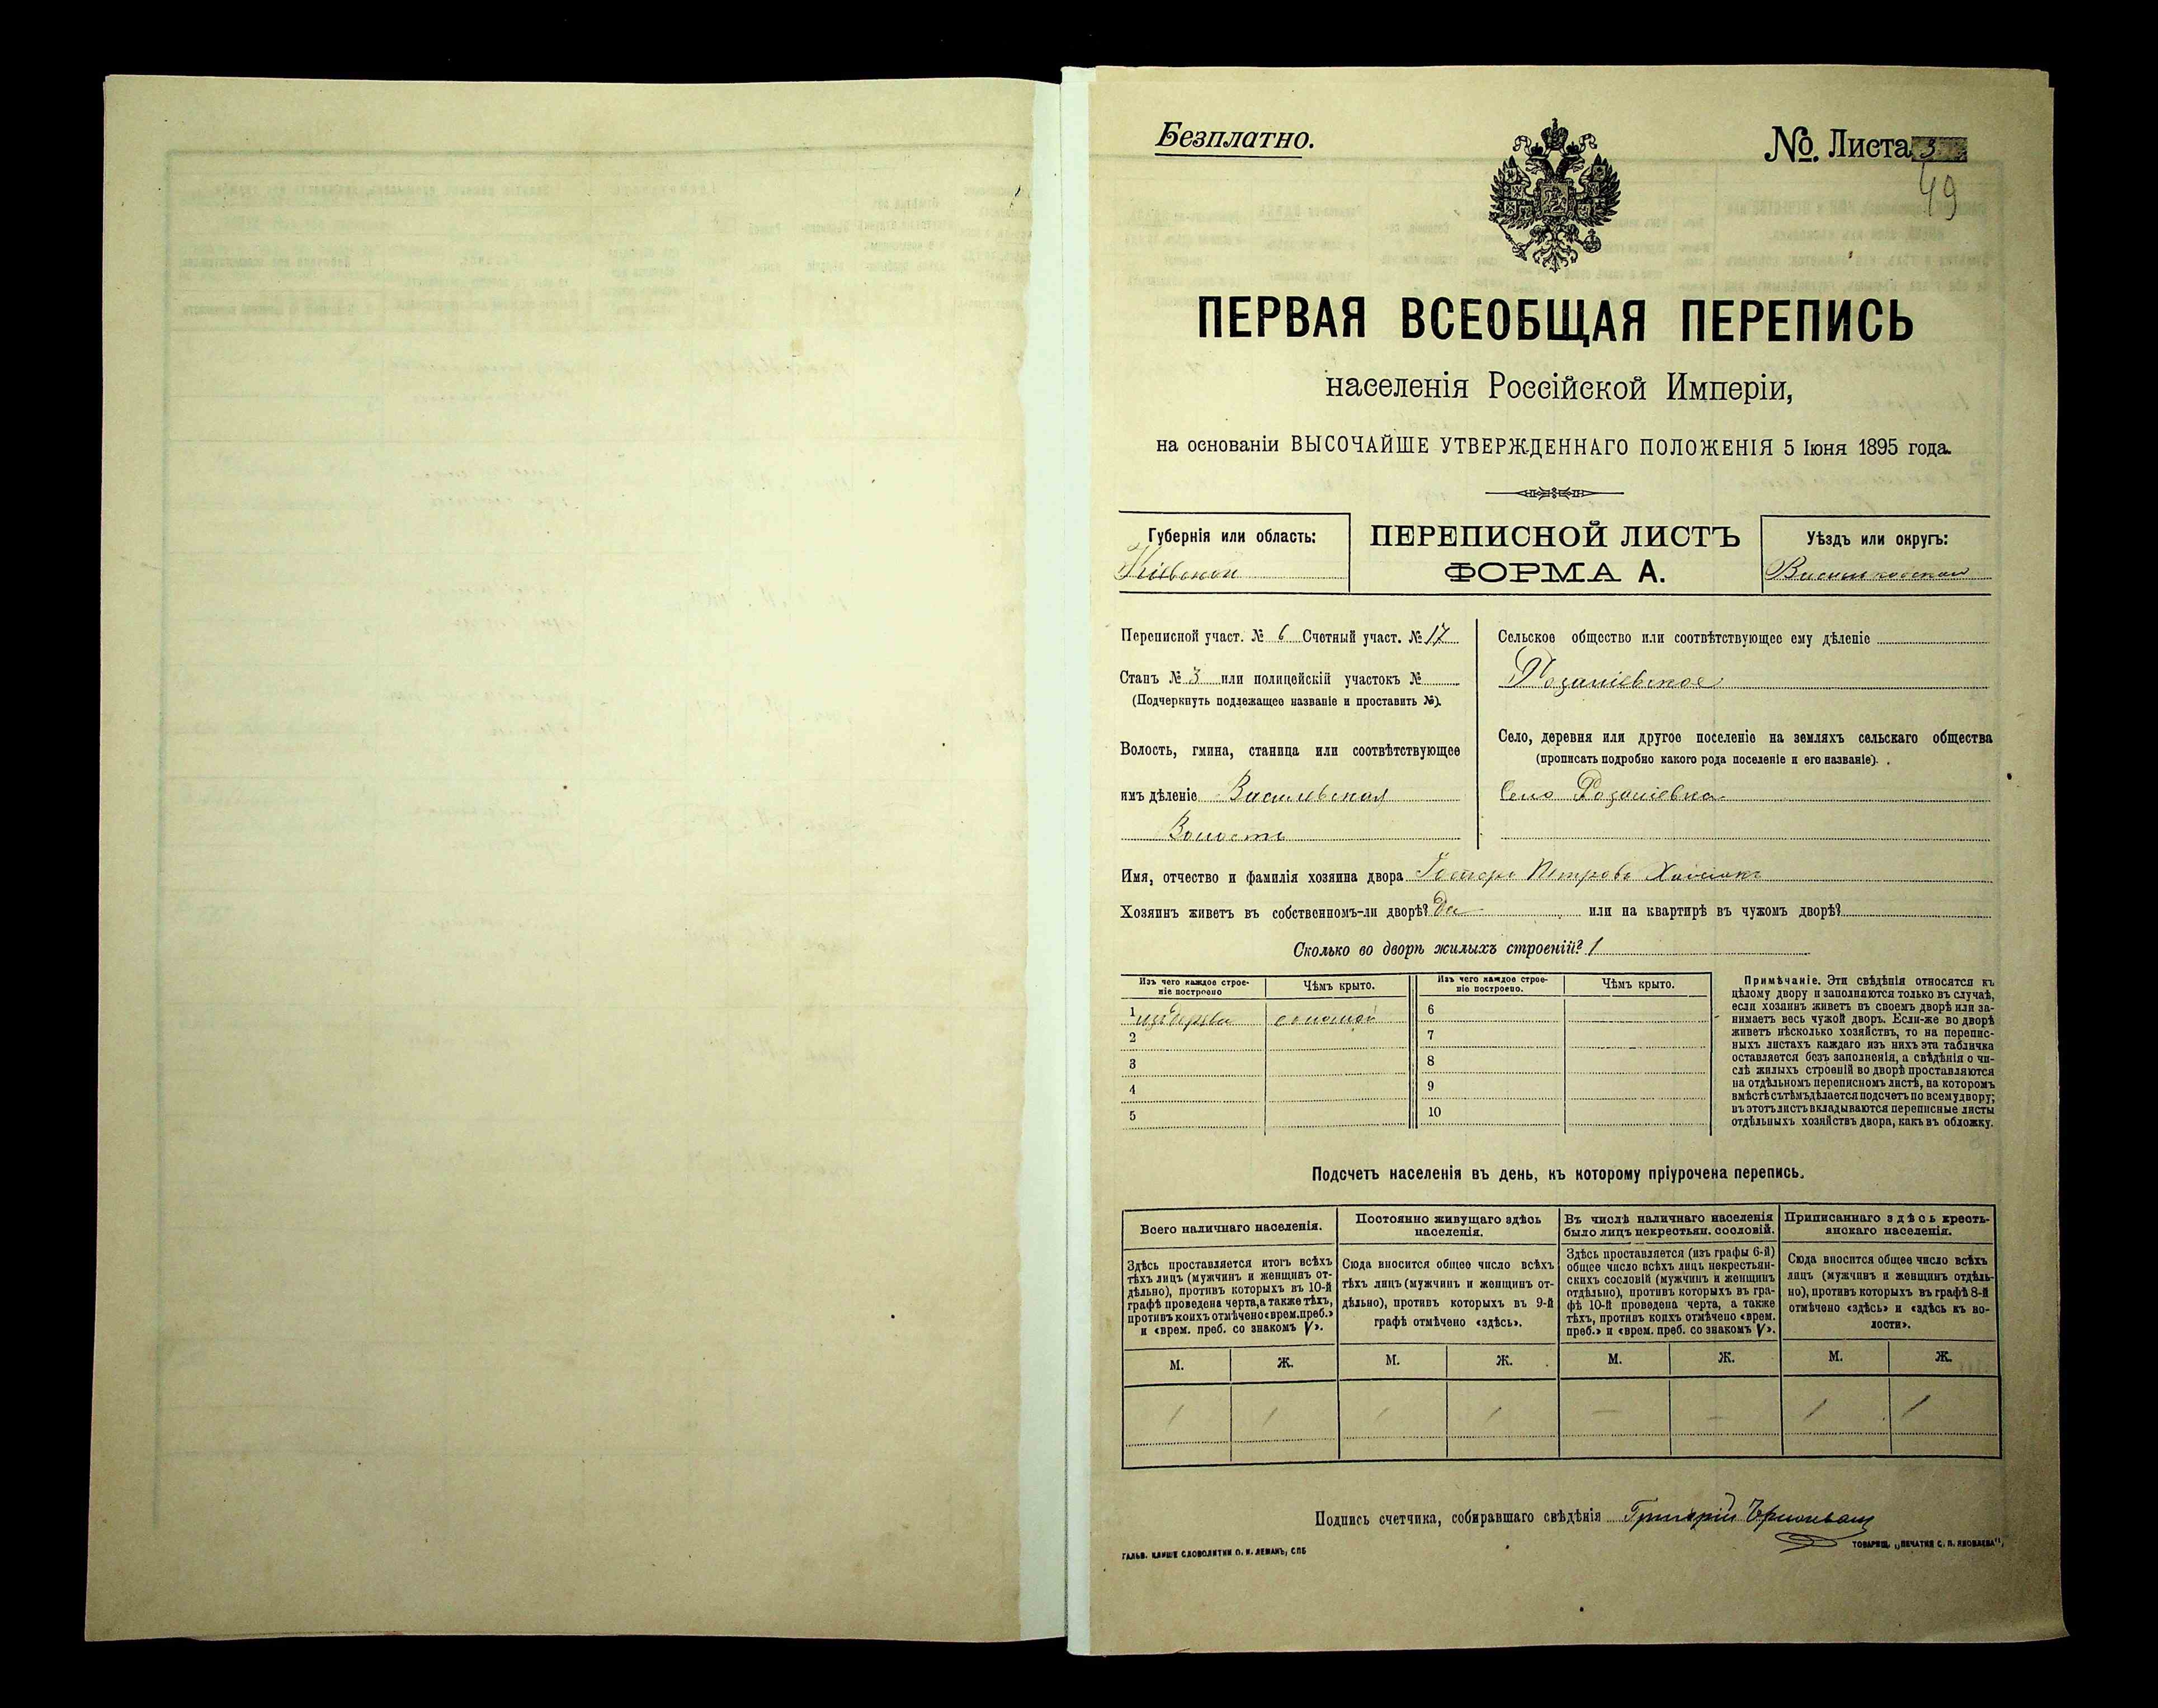 Безплатно.
№. Листа 3
49
ПЕРВАЯ ВСЕОБЩАЯ ПЕРЕПИСЬ
населенія Россійской Имперіи,
на основаніи ВЫСОЧАЙШЕ УТВЕРЖДЕННАГО ПОЛОЖЕНІЯ 5 Іюня 1895 года.
Губернія или область:
Кіевская
ПЕРЕПИСНОЙ ЛИСТЪ
ФОРМА А.
Уѣздъ или округъ:
Васильковскій
Переписной участ. № 6 Счетный участ. № 17
Станъ № 3 или полицейскій участокъ №
(Подчеркнуть подлежащее названіе и проставить №).
Волость, гмина, станица или соотвѣтствующее
имъ дѣленіе
Волость
Сельское общество или соотвѣтствующее ему дѣленіе
Село, деревня или другое поселеніе на земляхъ сельскаго общества
(прописать подробно какого рода поселеніе и его названіе).
Село
Имя, отчество и фамилія хозяина двора Петровъ
Хозяинъ живетъ въ собственномъ-ли дворѣ? Да или на квартирѣ въ чужомъ дворѣ?
Сколько во дворѣ жилыхъ строеній? 1
Изъ чего каждое строе-
ніе построено
Чѣмъ крыто.
Изъ чего каждое строе-
ніе построено.
Чѣмъ крыто.
1 изъ дерева соломой
2
3
4
5
6
7
8
9
10
Примѣчаніе. Эти свѣдѣнія относятся къ
цѣлому двору и заполняются только въ случаѣ,
если хозяинъ живетъ въ своемъ дворѣ или за-
нимаетъ весь чужой дворъ. Если-же во дворѣ
живетъ нѣсколько хозяйствъ, то на перепис-
ныхъ листахъ каждаго изъ нихъ эта табличка
оставляется безъ заполненія, а свѣдѣнія о чи-
слѣ жилыхъ строеній во дворѣ проставляются
на отдѣльномъ переписномъ листѣ, на которомъ
вмѣстѣ съ тѣмъ дѣлается подсчетъ по всему двору;
въ этотъ листъ вкладываются переписные листы
отдѣльныхъ хозяйствъ двора, какъ въ обложку.
Подсчетъ населенія въ день, къ которому пріурочена перепись.
Всего наличнаго населенія.
Здѣсь проставляется итогъ всѣхъ
тѣхъ лицъ (мужчинъ и женщинъ от-
дѣльно), противъ которыхъ въ 10-й
графѣ проведена черта, а также тѣхъ,
противъ коихъ отмѣчено «врем. преб.»
и «врем. преб. со знакомъ V».
Постоянно живущаго здѣсь
населенія.
Сюда вносится общее число всѣхъ
тѣхъ лицъ (мужчинъ и женщинъ от-
дѣльно), противъ которыхъ въ 9-й
графѣ отмѣчено «здѣсь».
Въ числѣ наличнаго населенія
было лицъ некрестьян. сословій.
Здѣсь проставляется (изъ графы 6-й)
общее число всѣхъ лицъ некрестьян-
скихъ сословій (мужчинъ и женщинъ
отдѣльно), противъ которыхъ въ гра-
фѣ 10-й проведена черта, а также
тѣхъ, противъ коихъ отмѣчено «врем.
преб.» и «врем. преб. со знакомъ V».
Приписаннаго здѣсь кресть-
янскаго населенія.
Сюда вносится общее число всѣхъ
лицъ (мужчинъ и женщинъ отдѣль-
но), противъ которыхъ въ графѣ 8-й
отмѣчено «здѣсь» и «здѣсь къ во-
лости».
М. Ж. М. Ж. М. Ж. М. Ж.
1 1 1 1 — — 1 1
Подпись счетчика, собиравшаго свѣдѣнія Григорій
ГАЛЬВ. КЛИШЕ СЛОВОЛИТНИ О. И. ЛЕМАНЪ, СПБ
ТОВАРИЩ. „ПЕЧАТНЯ С. П. ЯКОВЛЕВА“,